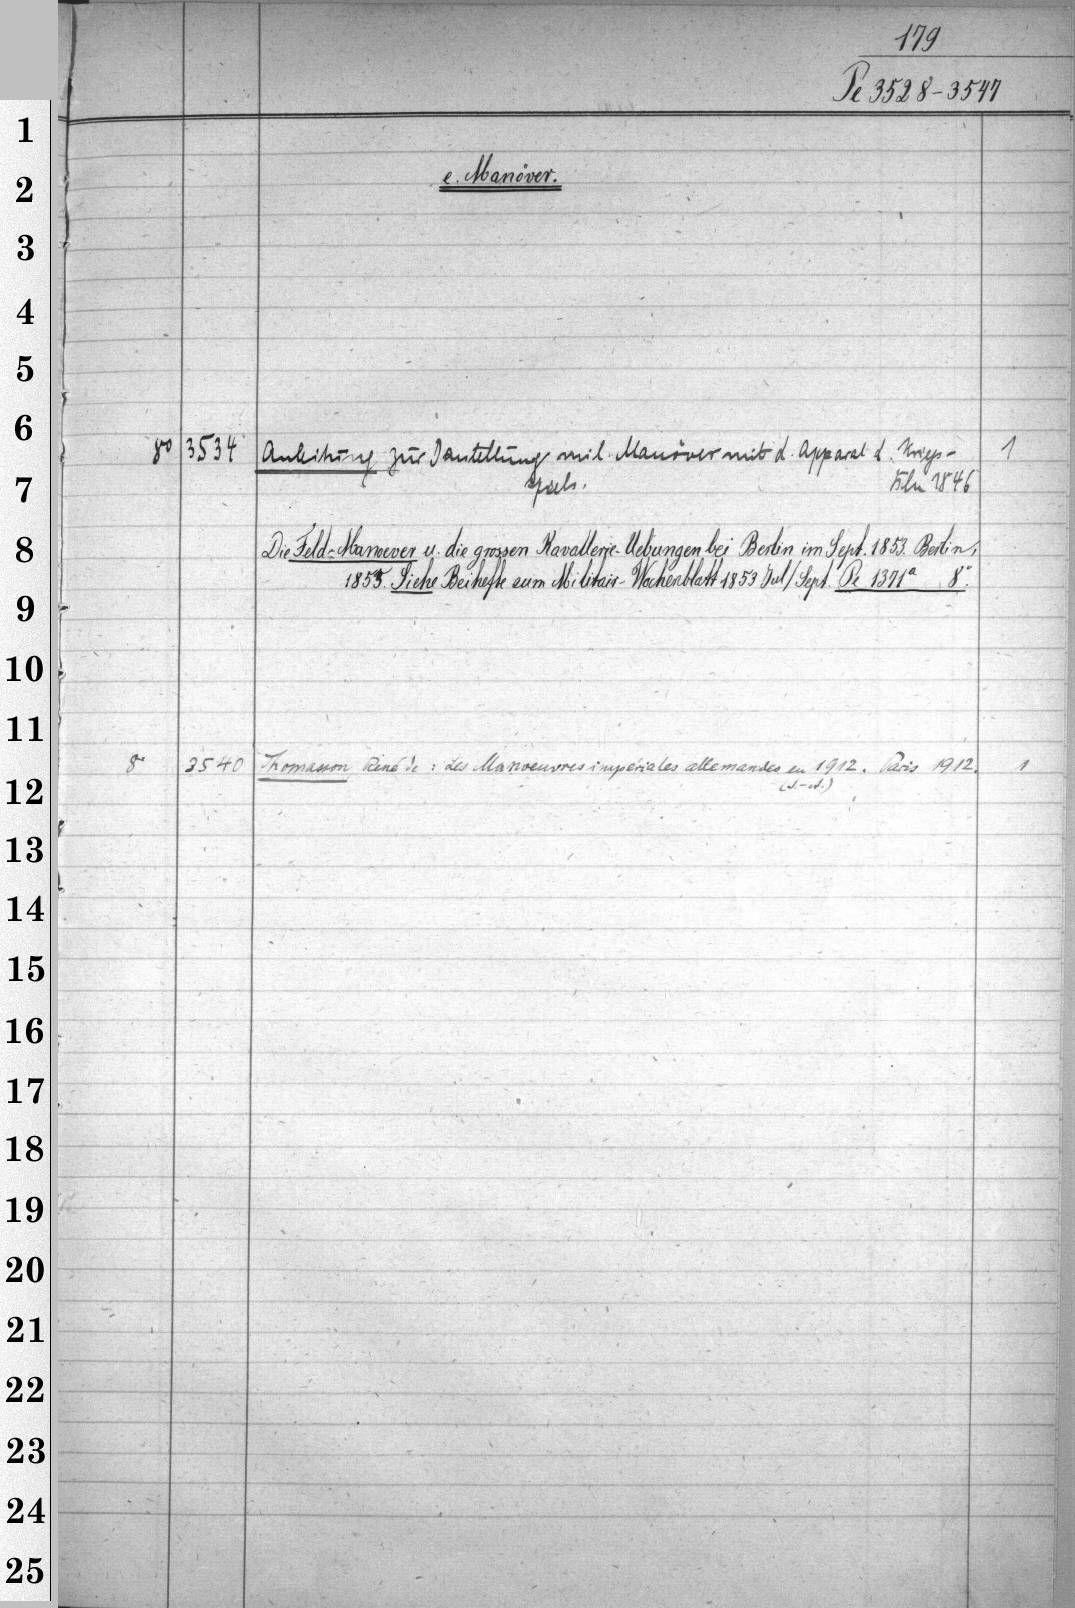 179
Pe 3528-3547
1
2
e. Manöver.
3
4
5
6
8° 3534 Anleitung zur Darstellung mil. Manöver mit d. Apparat d. Kriegs- 1
7
spiels. 1846
8
Die Feld-Manoever u. die grossen Kavallerie-Uebungen bei Berlin im Sept. 1853. Berlin,
1853. Siehe Beihefte zum Militair-Wochenblatt 1853 Jul/Sept. Pe 1371a 8°.
9
10
11
8° 3540 Thomasson René de: Les Manoeuvres impériales allemandes en 1912. Paris 1912. 1
12
13
14
15
16
17
18
19
20
21
22
23
24
25